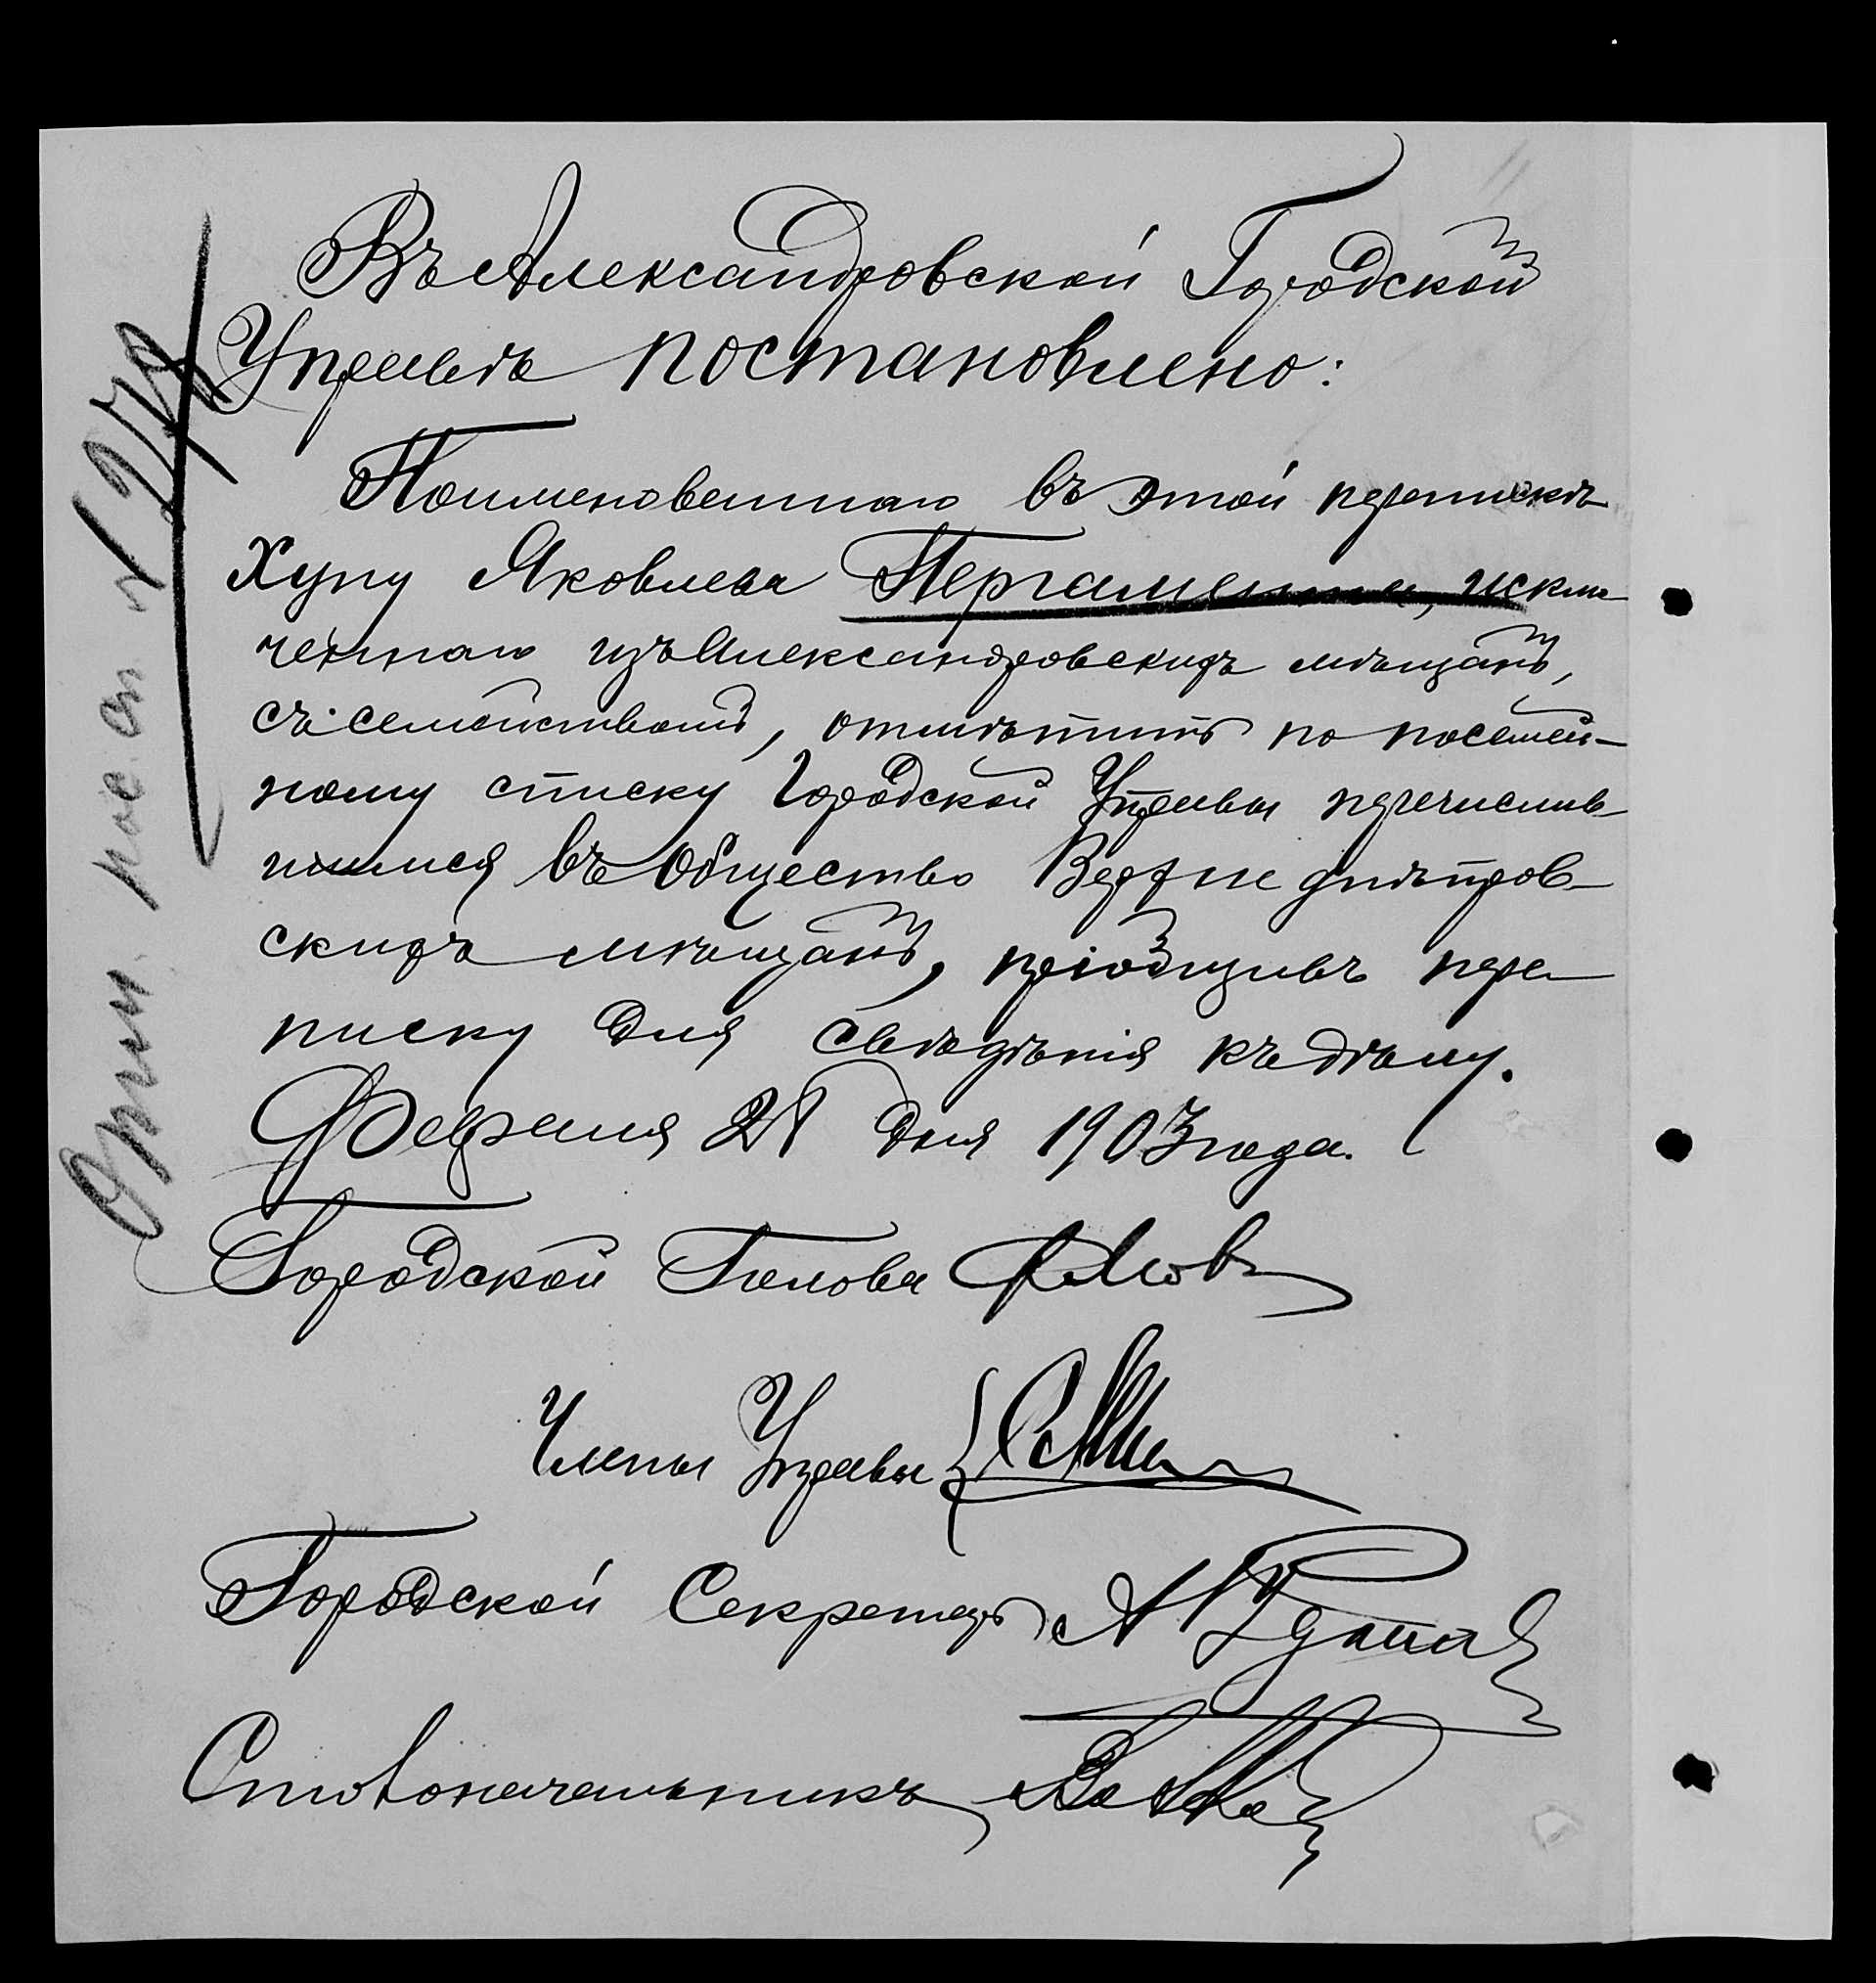 Въ Александровской Городской
Управѣ постановлено:
Поименованнаго въ этой перепискѣ
Хуну Яковлева Пергамента, исклю
ченнаго изъ Александровскихъ мѣщанъ,
съ семействомъ, отмѣтить по посемей-
ному списку Городской Управы перечислив-
шимся въ общество Верхнеднѣпров-
скихъ мѣщанъ, пріобщивъ пере
писку для свѣдѣнія къ дѣлу.
Февраля дня 1903 года.
Городской Голова
Члены Управы
Городской Секретарь
Столоначальникъ
Отм. пос. сп.